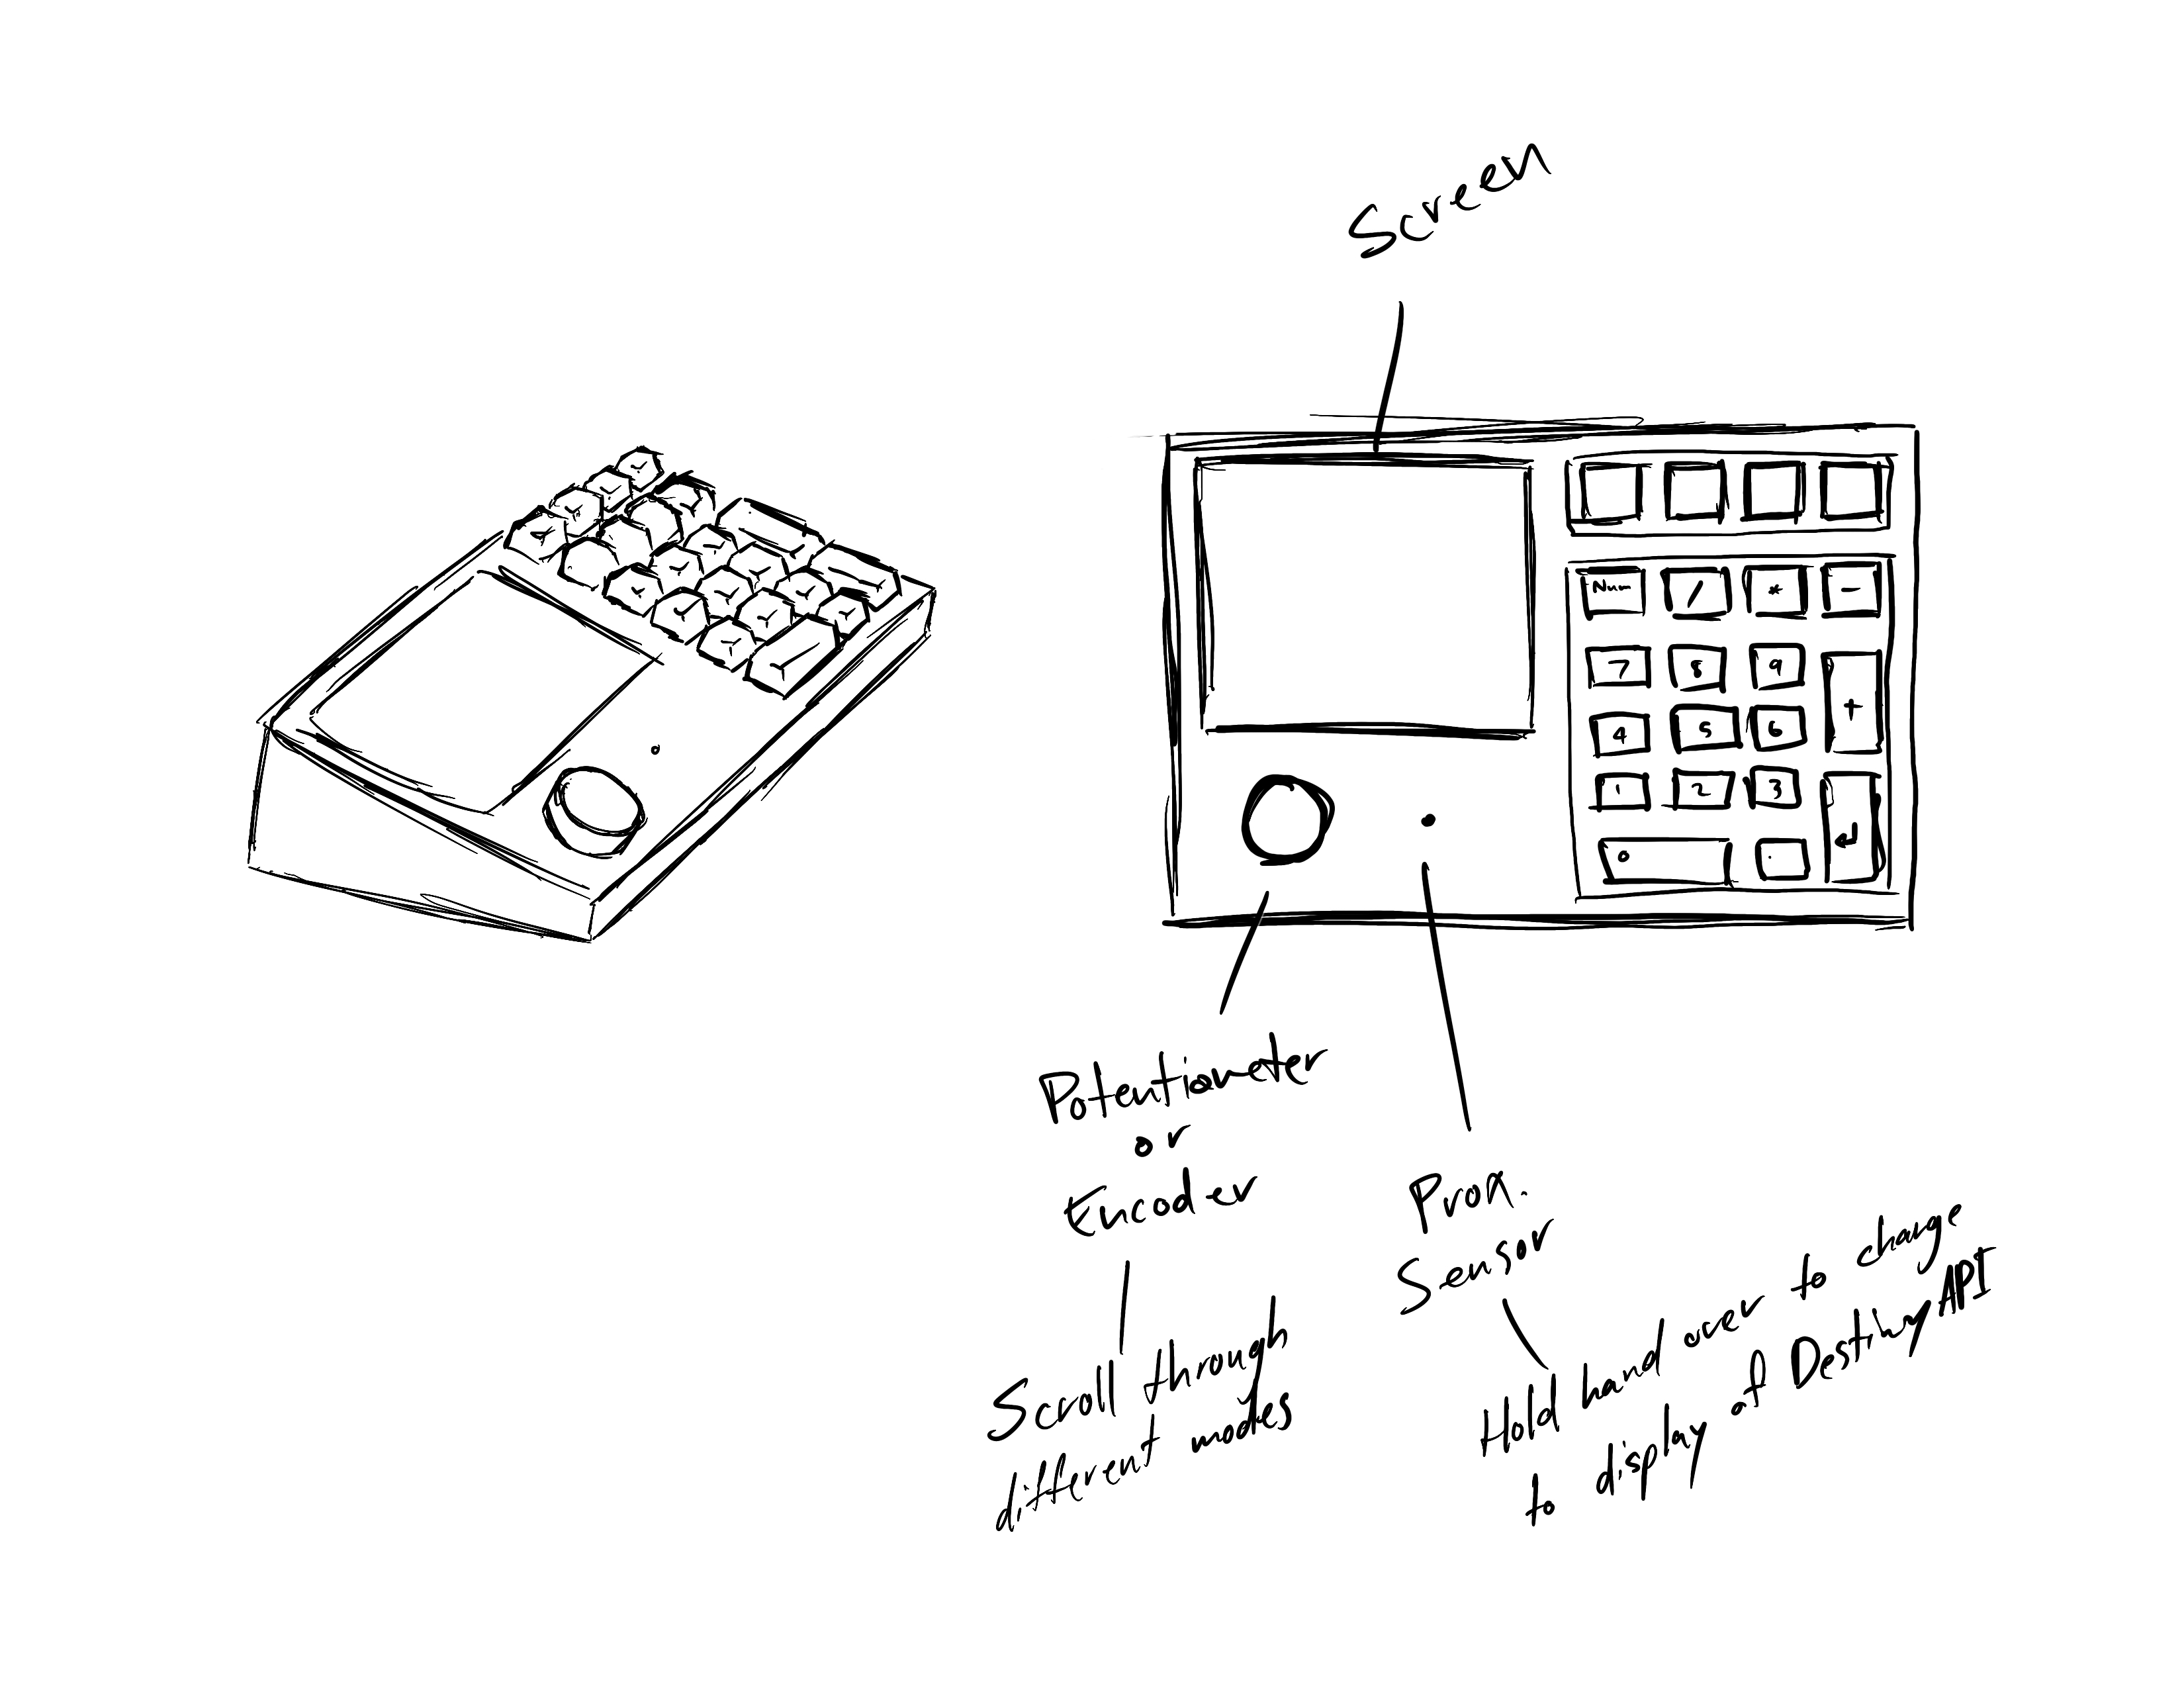 Screen
Num / * -
7 8 9 +
4 5 6
1 2 3 ↵
0 .
Potentiometer
or
Encoder
Scroll through
different modes
Prox.
Sensor
Hold hand over to change
to display of Destiny API